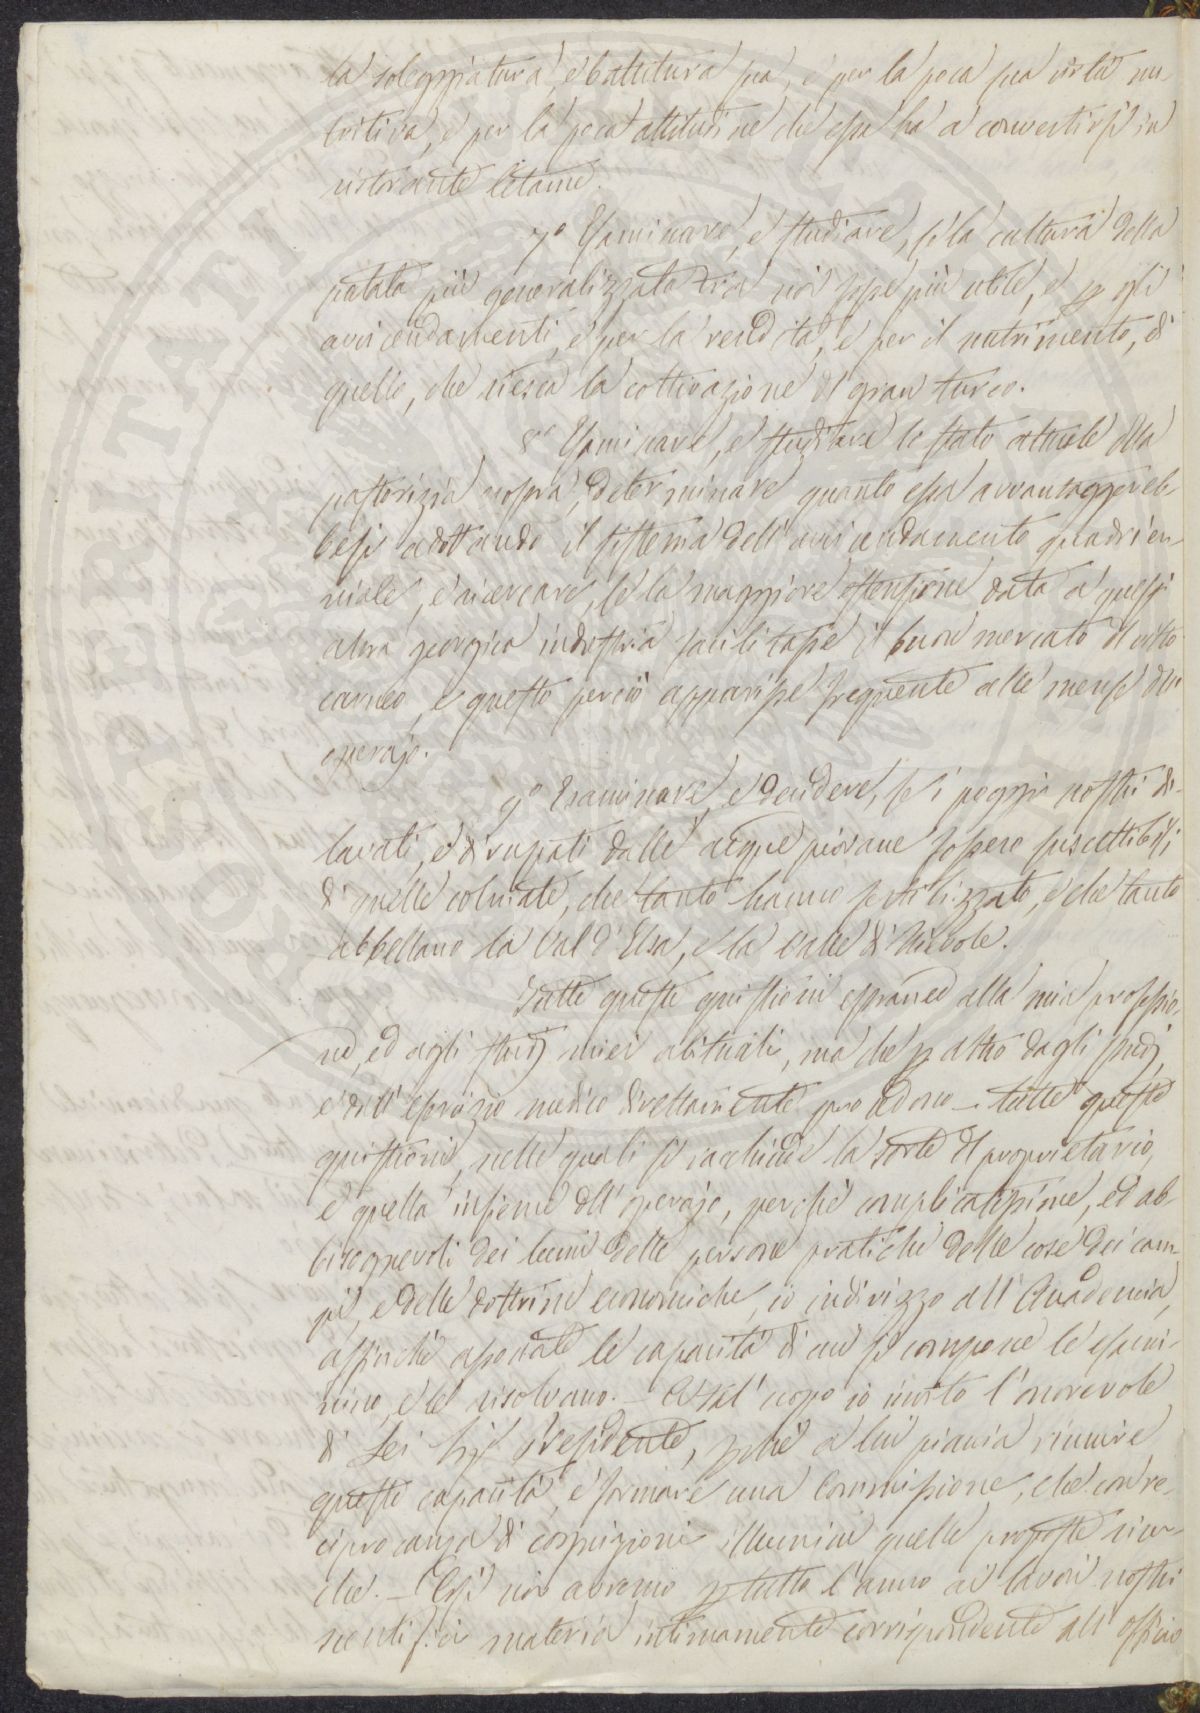 la soleggiatura, e battitura sua, e per la poca sua virtù nu-
tritiva, e per la poca attitudine che essa ha a convertirsi in
ristorante letame.
7.o Esaminare, e studiare, se la cultura della
patata più generalizzata tra noi fosse più utile, e p gli
avvicendamenti, e per la rendita, e per il nutrimento, di
quello, che riesca la coltivazione del gran turco.
8.o Esaminare, e studiare lo stato attuale della
pastorizia nostra, determinare quanto essa avvantaggereb-
besi adottando il sistema dell'avvicendamento quadrien-
niale, e ricercare, se la maggiore estensione data a quest'
altra georgica industria facilitasse il buon mercato del vitto
carneo, e questo perciò apparisse frequente alle mense dell'
operajo.
9.o Esaminare, e decidere, se i poggi nostri di-
lavati, e dirupati dalle acque piovane fossero suscettibili
di quelle colmate, che tanto hanno fertilizzato, e che tanto
abbellano la Val d'Elsa, e la Valle di Nievole.
Tutte queste quistioni estranee alla mia professio-
ne, ed agli studj miei abituali, ma che p altro dagli studj,
e dall'esercizio medico direttamente procedono – tutte queste
quistioni, nelle quali si racchiude la sorte del proprietario,
e quella insieme dell'operajo, perchè complicatissime, ed ab-
bisognevoli dei lumi delle persone pratiche delle cose dei cam-
pi, e delle dottrine economiche, io indirizzo all'Accademia,
affinchè associate le capacità di cui si compone le esami-
nino, e le risolvano. – A tal uopo io invito l'onorevole
di Lei Sig. Presidente, perchè a lui piaccia riunire
queste capacità, e formare una Commissione, che con re-
ciprocanza di cognizioni illumini quelle proposte ricer-
che. – Così noi avremo p tutto l'anno ai lavori nostri
materia intimamente corrispondente all'officio